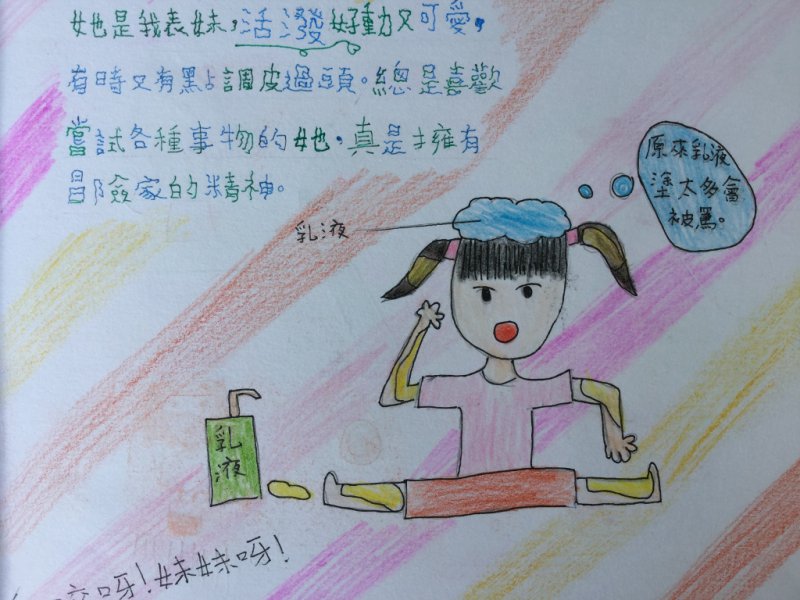 她是我表妹,活潑好動又可愛,
有時又有點調皮過頭。總是喜歡
嘗試各種事物的她,真是擁有
冒險家的精神。
原來乳液
塗太多會
被罵。
乳液
乳液
呀!妹妹呀!